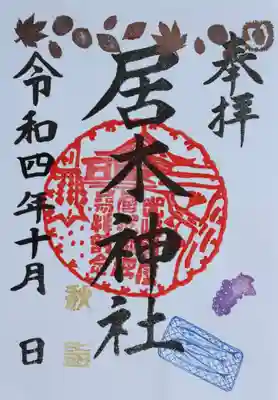 奉拝
居木神社
令和四年十月 日
秋詣